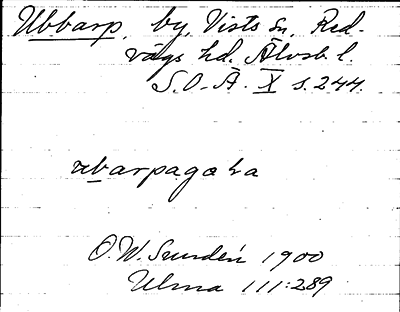 Ubbarp, by, Vists sn, Red-
vägs hd. Älvsb. l.
S.O.Ä. X s. 244.
ubarpagata
O. W. Sundén 1900
Ulma 111:289